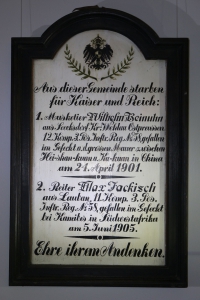 Aus dieser Gemeinde starben
für Kaiser und Reich:
1. Musketier Wilhelm
aus Kr. Ostpreussen,
12. Komp. 3. Pos. Inftr. Reg. № 58, gefallen
im Gefecht a. d. grossen Mauer zwischen
in China
am 24. April 1901.
2. Reiter Max Jackisch
aus Lautau, 11. Komp. 3. Pos.
Inftr. Reg. № 58, gefallen im Gefecht
bei in Südwestafrika
am 5. Juni 1905.
Ehre ihrem Andenken.